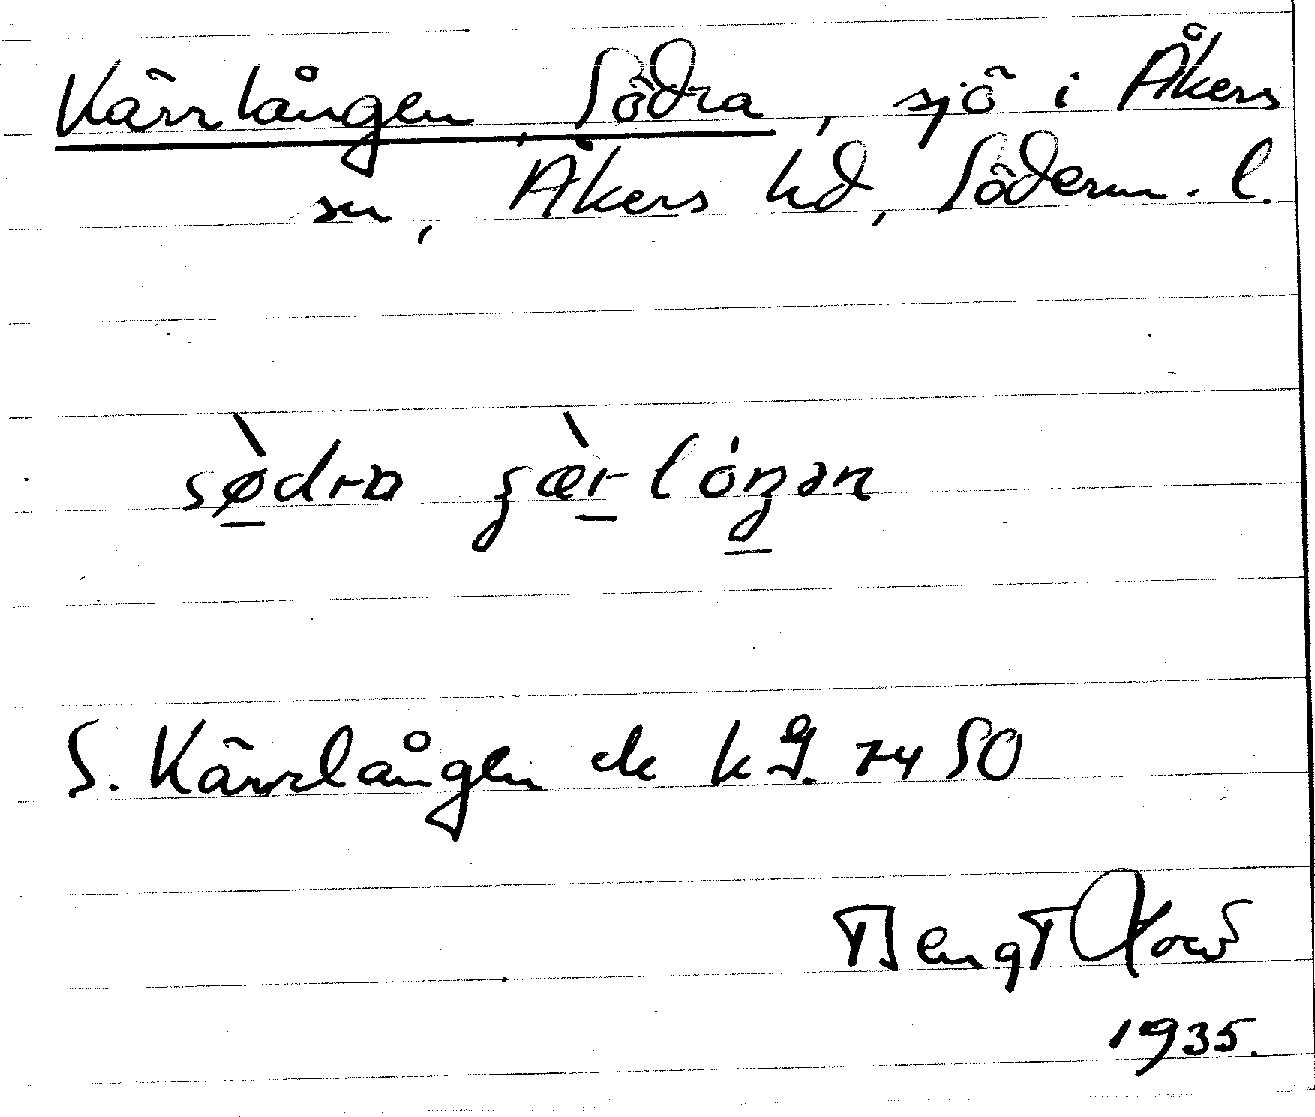 Kärrlången, Södra, sjö i Åkers
sn, Åkers hd, Söderm. l.
sø̀dra
S. Kärrlången ek kg. 74 SO
Bengt
1935.